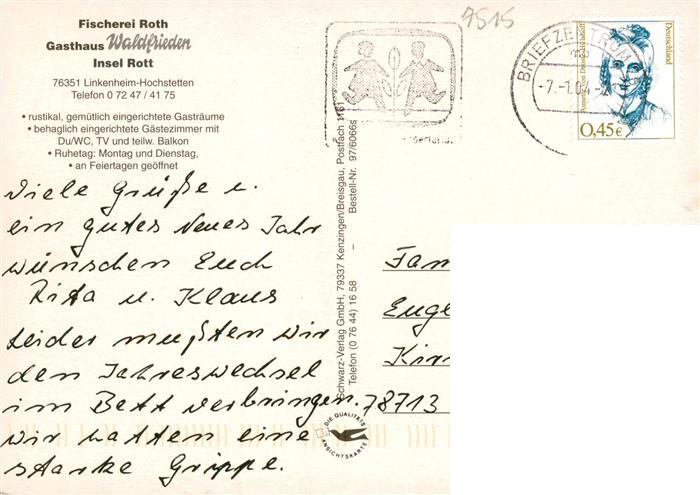 Fischerei Roth
Gasthaus Waldfrieden
Insel Rott
76351 Linkenheim-Hochstetten
Telefon 0 72 47 / 41 75
• rustikal, gemütlich eingerichtete Gasträume
• behaglich eingerichtete Gästezimmer mit
Du/WC, TV und teilw. Balkon
• Ruhetag: Montag und Dienstag,
• an Feiertagen geöffnet
Viele Grüße u.
ein gutes Neues Jahr
wünschen Euch
Rita u. Klaus
Leider mußten wir
den Jahreswechsel
im Bett verbringen.
Wir hatten eine
starke Grippe.
Schwarz-Verlag GmbH, 79337 Kenzingen/Breisgau, Postfach 1161
Telefon (0 76 44) 16 58 – Bestell-Nr. 97/6066s
DIE QUALITÄTS
ANSICHTSKARTE
7515
BRIEFZENTRUM
-7.-1.04
Deutschland
0,45€
Fam
Euge
Kir
78713